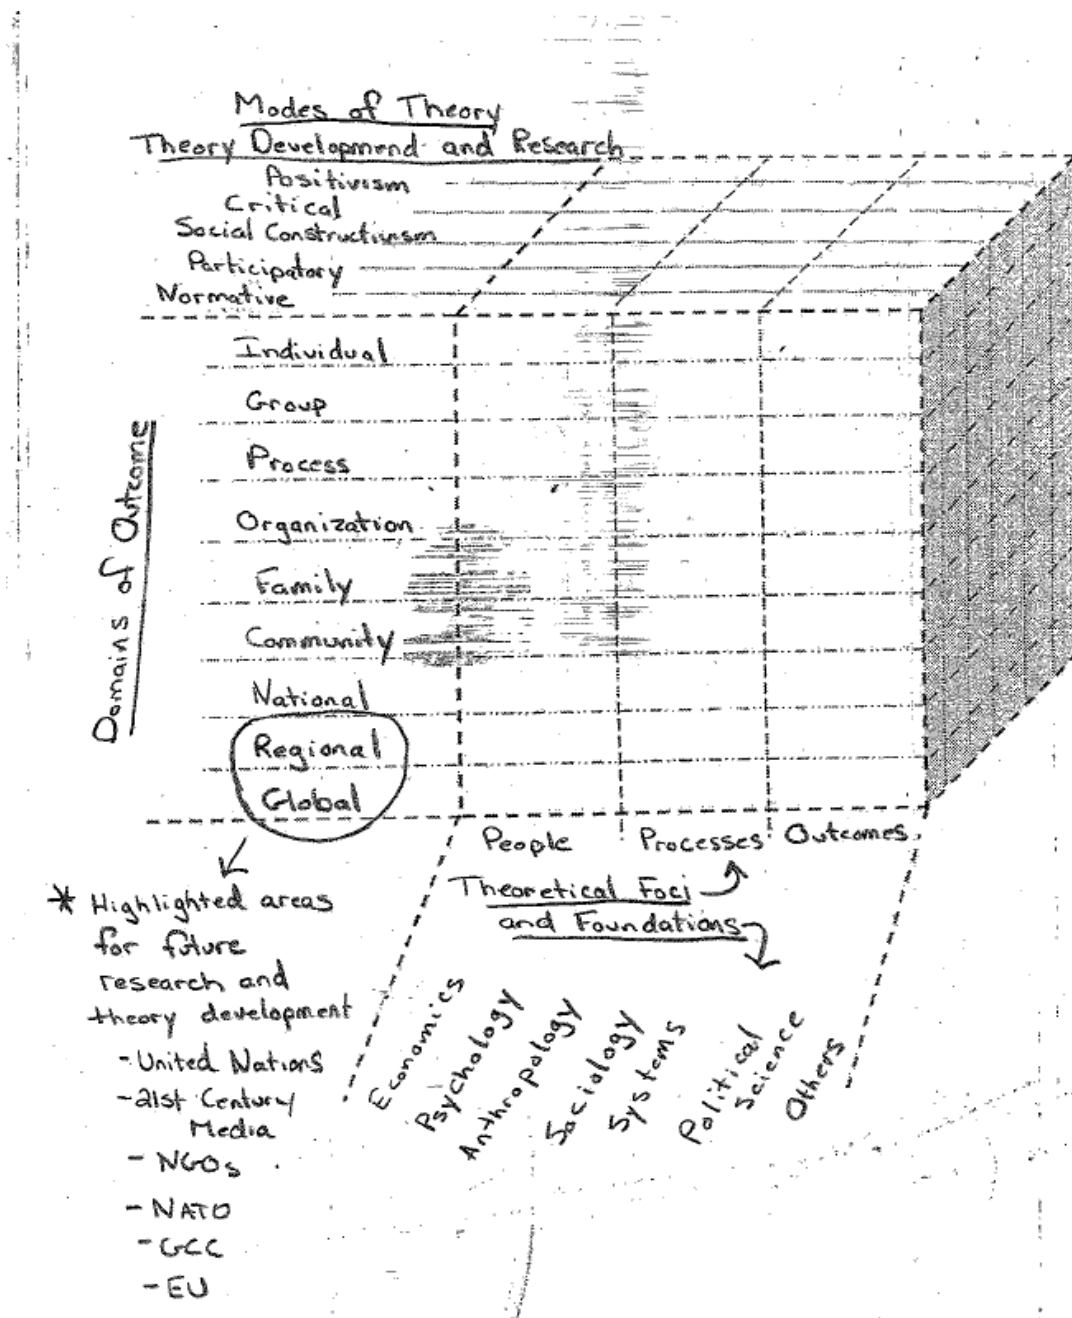 Modes of Theory
Theory Developmend and Research
Positivism
Critical
Social Constructivism
Participatory
Normative
Domains of Outcome
Individual
Group
Process
Organization
Family
Community
National
Regional
Global
People
Processes
Outcomes
Theoretical Foci
and Foundations
Economics
Psychology
Anthropology
Sociology
Systems
Political
Science
Others
* Highlighted areas
for future
research and
theory development
- United Nations
- 21st Century
Media
- NGOs
- NATO
- GCC
- EU